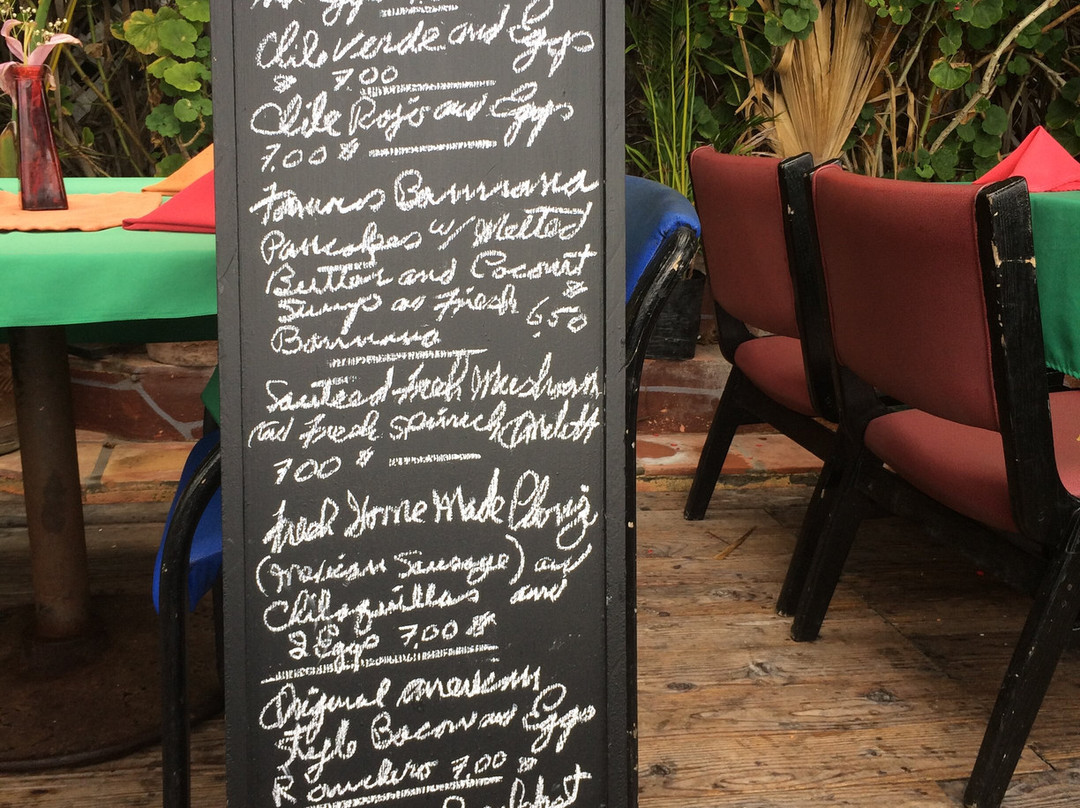 Chile Verde and Eggs
$ 7.00
Chile Rojo and Eggs
7.00 $
Famous Bannana
Pancakes w/ Melted
Butter and Coconut
Syrup and Fresh $ 6.50
Bannana
Sauteed Fresh Mushroom
and Fresh Spinich Omelett
7.00 $
Fresh Home Made Choriz
(Mexican Sausage) and
Chilaquillas and
2 Eggs 7.00 $
Original Mexican
Style Bacon and Eggs
Ranchero 7.00 $